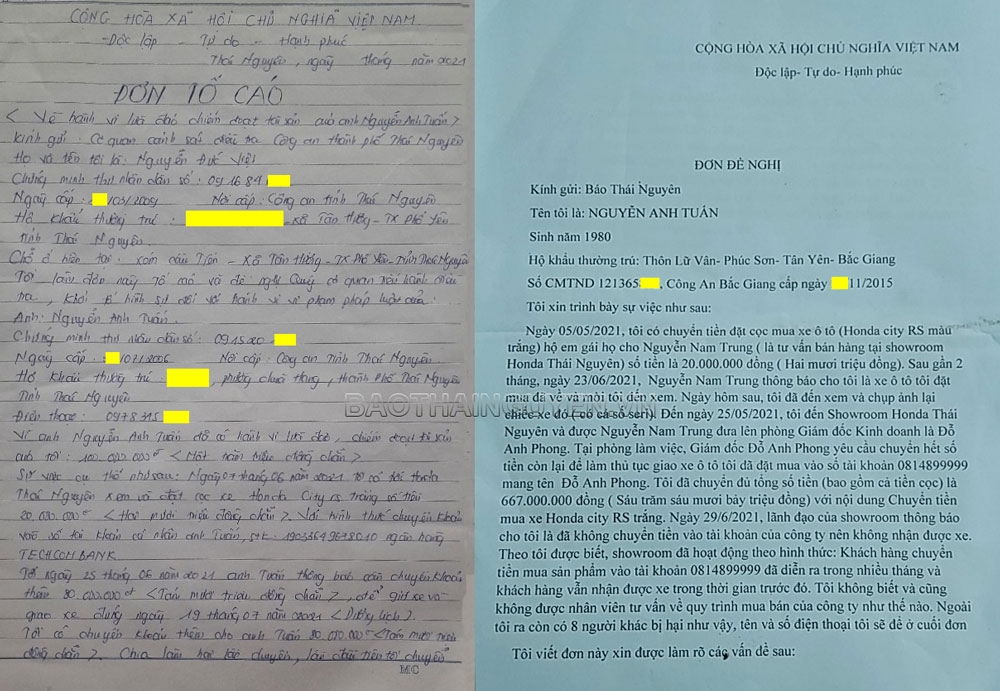 CỘNG HÒA XÃ HỘI CHỦ NGHĨA VIỆT NAM
Độc lập - Tự do - Hạnh phúc
Thái Nguyên, ngày tháng năm 2021
ĐƠN TỐ CÁO
< Về hành vi lừa đảo chiếm đoạt tài sản của anh Nguyễn Anh Tuấn >
Kính gửi: Cơ quan cảnh sát điều tra Công an thành phố Thái Nguyên
Họ và tên tôi là: Nguyễn Đức Việt
Chứng minh thư nhân dân số: 091684
Ngày cấp: /03/2009 Nơi cấp: Công an tỉnh Thái Nguyên
Hộ khẩu thường trú: xã Tân Hương - TX Phổ Yên
tỉnh Thái Nguyên
Chỗ ở hiện tại: xóm cầu Tiên - Xã Tân Hương - TX Phổ Yên - Tỉnh Thái Nguyên
Tôi làm đơn này tố cáo và đề nghị Quý cơ quan tiến hành điều
tra, khởi tố hình sự đối với hành vi vi phạm pháp luật của:
Anh: Nguyễn Anh Tuấn.
Chứng minh thư nhân dân số: 091520
Ngày cấp: /07/2006 Nơi cấp: Công an Tỉnh Thái Nguyên.
Hộ khẩu thường trú: , phường chùa Hang, thành phố Thái Nguyên
Tỉnh Thái Nguyên
Điện thoại: 0978315
Vì anh Nguyễn Anh Tuấn đã có hành vi lừa đảo, chiếm đoạt tài sản
của tôi: 100.000.000đ < Một trăm triệu đồng chẵn >
Sự việc cụ thể như sau: Ngày 07 tháng 06 năm 2021 tôi có tới Honda
Thái Nguyên xem và đặt cọc xe Honda City rs trắng số tiền
20.000.000đ < Hai mươi triệu đồng chẵn >. Với hình thức chuyển khoản
vào số tài khoản cá nhân anh Tuấn, stk: 19036498678010 ngân hàng
TECHCOMBANK
Tới ngày 25 tháng 06 năm 2021 anh Tuấn thông báo cần chuyển khoản
thêm 80.000.000đ < Tám mươi triệu đồng chẵn >, để giữ xe và
giao xe đúng ngày 19 tháng 07 năm 2021 < Dương lịch >.
Tôi có chuyển khoản thêm cho anh Tuấn 80.000.000đ < Tám mươi triệu
đồng chẵn >. Chia làm hai lần chuyển, lần đầu tiên tôi chuyển
CỘNG HÒA XÃ HỘI CHỦ NGHĨA VIỆT NAM
Độc lập- Tự do- Hạnh phúc
ĐƠN ĐỀ NGHỊ
Kính gửi: Báo Thái Nguyên
Tên tôi là: NGUYỄN ANH TUẤN
Sinh năm 1980
Hộ khẩu thường trú: Thôn Lữ Vân- Phúc Sơn- Tân Yên- Bắc Giang
Số CMTND 121365 , Công An Bắc Giang cấp ngày 11/2015
Tôi xin trình bày sự việc như sau:
Ngày 05/05/2021, tôi có chuyển tiền đặt cọc mua xe ô tô (Honda city RS màu
trắng) hộ em gái họ cho Nguyễn Nam Trung ( là tư vấn bán hàng tại showroom
Honda Thái Nguyên) số tiền là 20.000.000 đồng ( Hai mươi triệu đồng). Sau gần 2
tháng, ngày 23/06/2021, Nguyễn Nam Trung thông báo cho tôi là xe ô tô tôi đặt
mua đã về và mời tôi đến xem. Ngày hôm sau, tôi đã đến xem và chụp ảnh lại
chiếc xe đó ( có cả số seri). Đến ngày 25/05/2021, tôi đến Showroom Honda Thái
Nguyên và được Nguyễn Nam Trung đưa lên phòng Giám đốc Kinh doanh là Đỗ
Anh Phong. Tại phòng làm việc, Giám đốc Đỗ Anh Phong yêu cầu chuyển hết số
tiền còn lại để làm thủ tục giao xe ô tô tôi đã đặt mua vào số tài khoản 0814899999
mang tên Đỗ Anh Phong. Tôi đã chuyển đủ tổng số tiền (bao gồm cả tiền cọc) là
667.000.000 đồng ( Sáu trăm sáu mươi bảy triệu đồng) với nội dung Chuyển tiền
mua xe Honda city RS trắng. Ngày 29/6/2021, lãnh đạo của showroom thông báo
cho tôi là đã không chuyển tiền vào tài khoản của công ty nên không nhận được xe.
Theo tôi được biết, showroom đã hoạt động theo hình thức: Khách hàng chuyển
tiền mua sản phẩm vào tài khoản 0814899999 đã diễn ra trong nhiều tháng và
khách hàng vẫn nhận được xe trong thời gian trước đó. Tôi không biết và cũng
không được nhân viên tư vấn về quy trình mua bán của công ty như thế nào. Ngoài
tôi ra còn có 8 người khác bị hại như vậy, tên và số điện thoại tôi sẽ để ở cuối đơn
Tôi viết đơn này xin được làm rõ các vấn đề sau:
BAOTHAINGUYEN.VN
MC